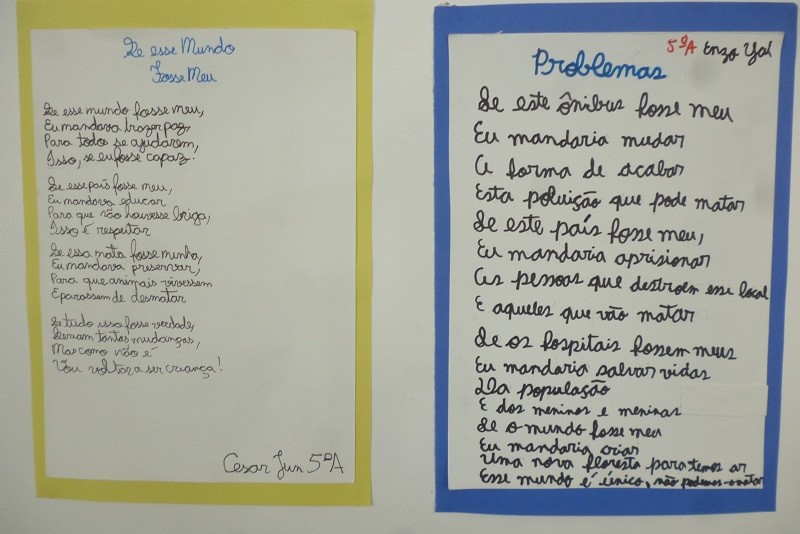 Se esse Mundo
Fosse Meu
Se esse mundo fosse meu,
Eu mandava trazer paz,
Para todos se ajudarem,
Isso, se eu fosse capaz!
Se esse país fosse meu,
Eu mandava educar
Para que não houvesse briga,
Isso é respeitar
Se essa mata fosse minha,
Eu mandava preservar,
Para que animais vivessem
E parassem de desmatar
Se tudo isso fosse verdade,
Seriam tantas mudanças,
Mas como não é
Vou voltar a ser criança!
Cesar Jun 5ºA
5ºA Enzo Yal
Problemas
Se este ônibus fosse meu
Eu mandaria mudar
A forma de acabar
Esta poluição que pode matar
Se este país fosse meu,
Eu mandaria aprisionar
As pessoas que destroem esse local
E aqueles que vão matar
Se os hospitais fossem meus
Eu mandaria salvar vidas
Da população
E dos meninos e meninas
Se o mundo fosse meu
Eu mandaria criar
Uma nova floresta para temos ar
Esse mundo é único, não podemos o matar